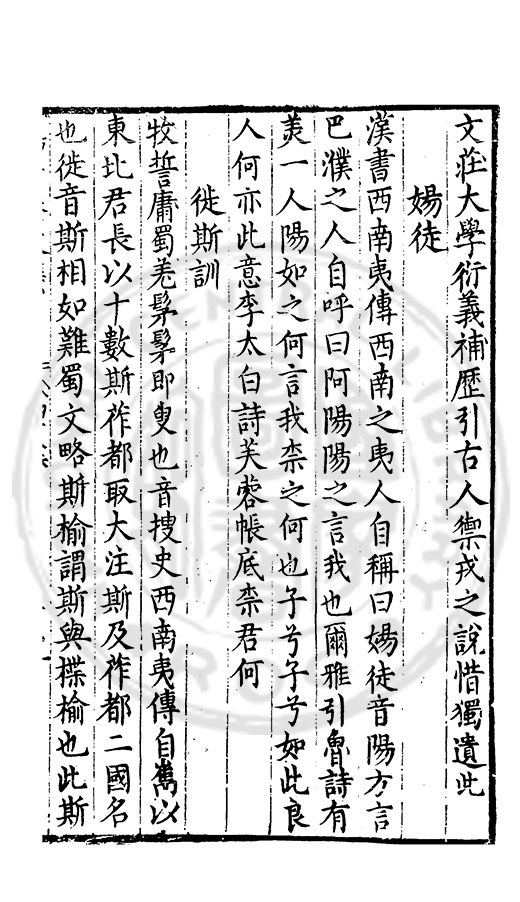 文莊大學衍義補歷引古人禦戎之說惜獨遺此
媀徒
漢書西南夷傳西南之夷人自稱曰媀徒音陽方言
巴濮之人自呼曰阿陽陽之言我也爾雅引魯詩有
羙一人陽如之何言我柰之何也子兮子兮如此良
人何亦此意李太白詩芙蓉帳底柰君何
徙斯訓
牧誓庸蜀羗髳髳即叟也音搜史西南夷傳自嶲以
東北君長以十數斯筰都取大注斯及筰都二國名
也徙音斯相如難蜀文略斯榆謂斯與楪榆也此斯